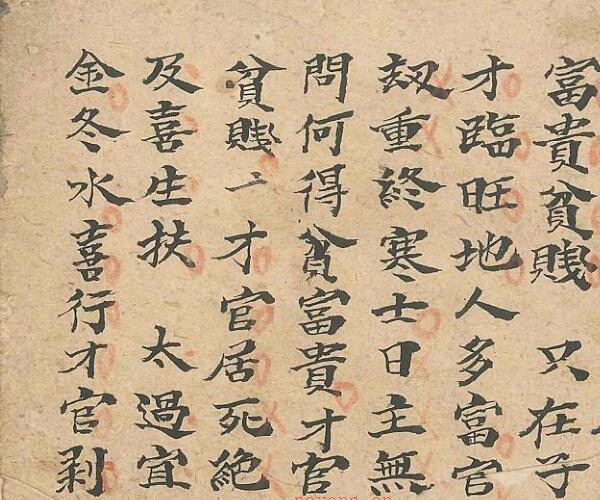 富貴貧賤 只在子
才臨旺地人多富官
刼重終寒士日主無
問何得貧富貴才官
貧賤才官居死絶
及喜生扶 太過宜
金冬水喜行才官剥